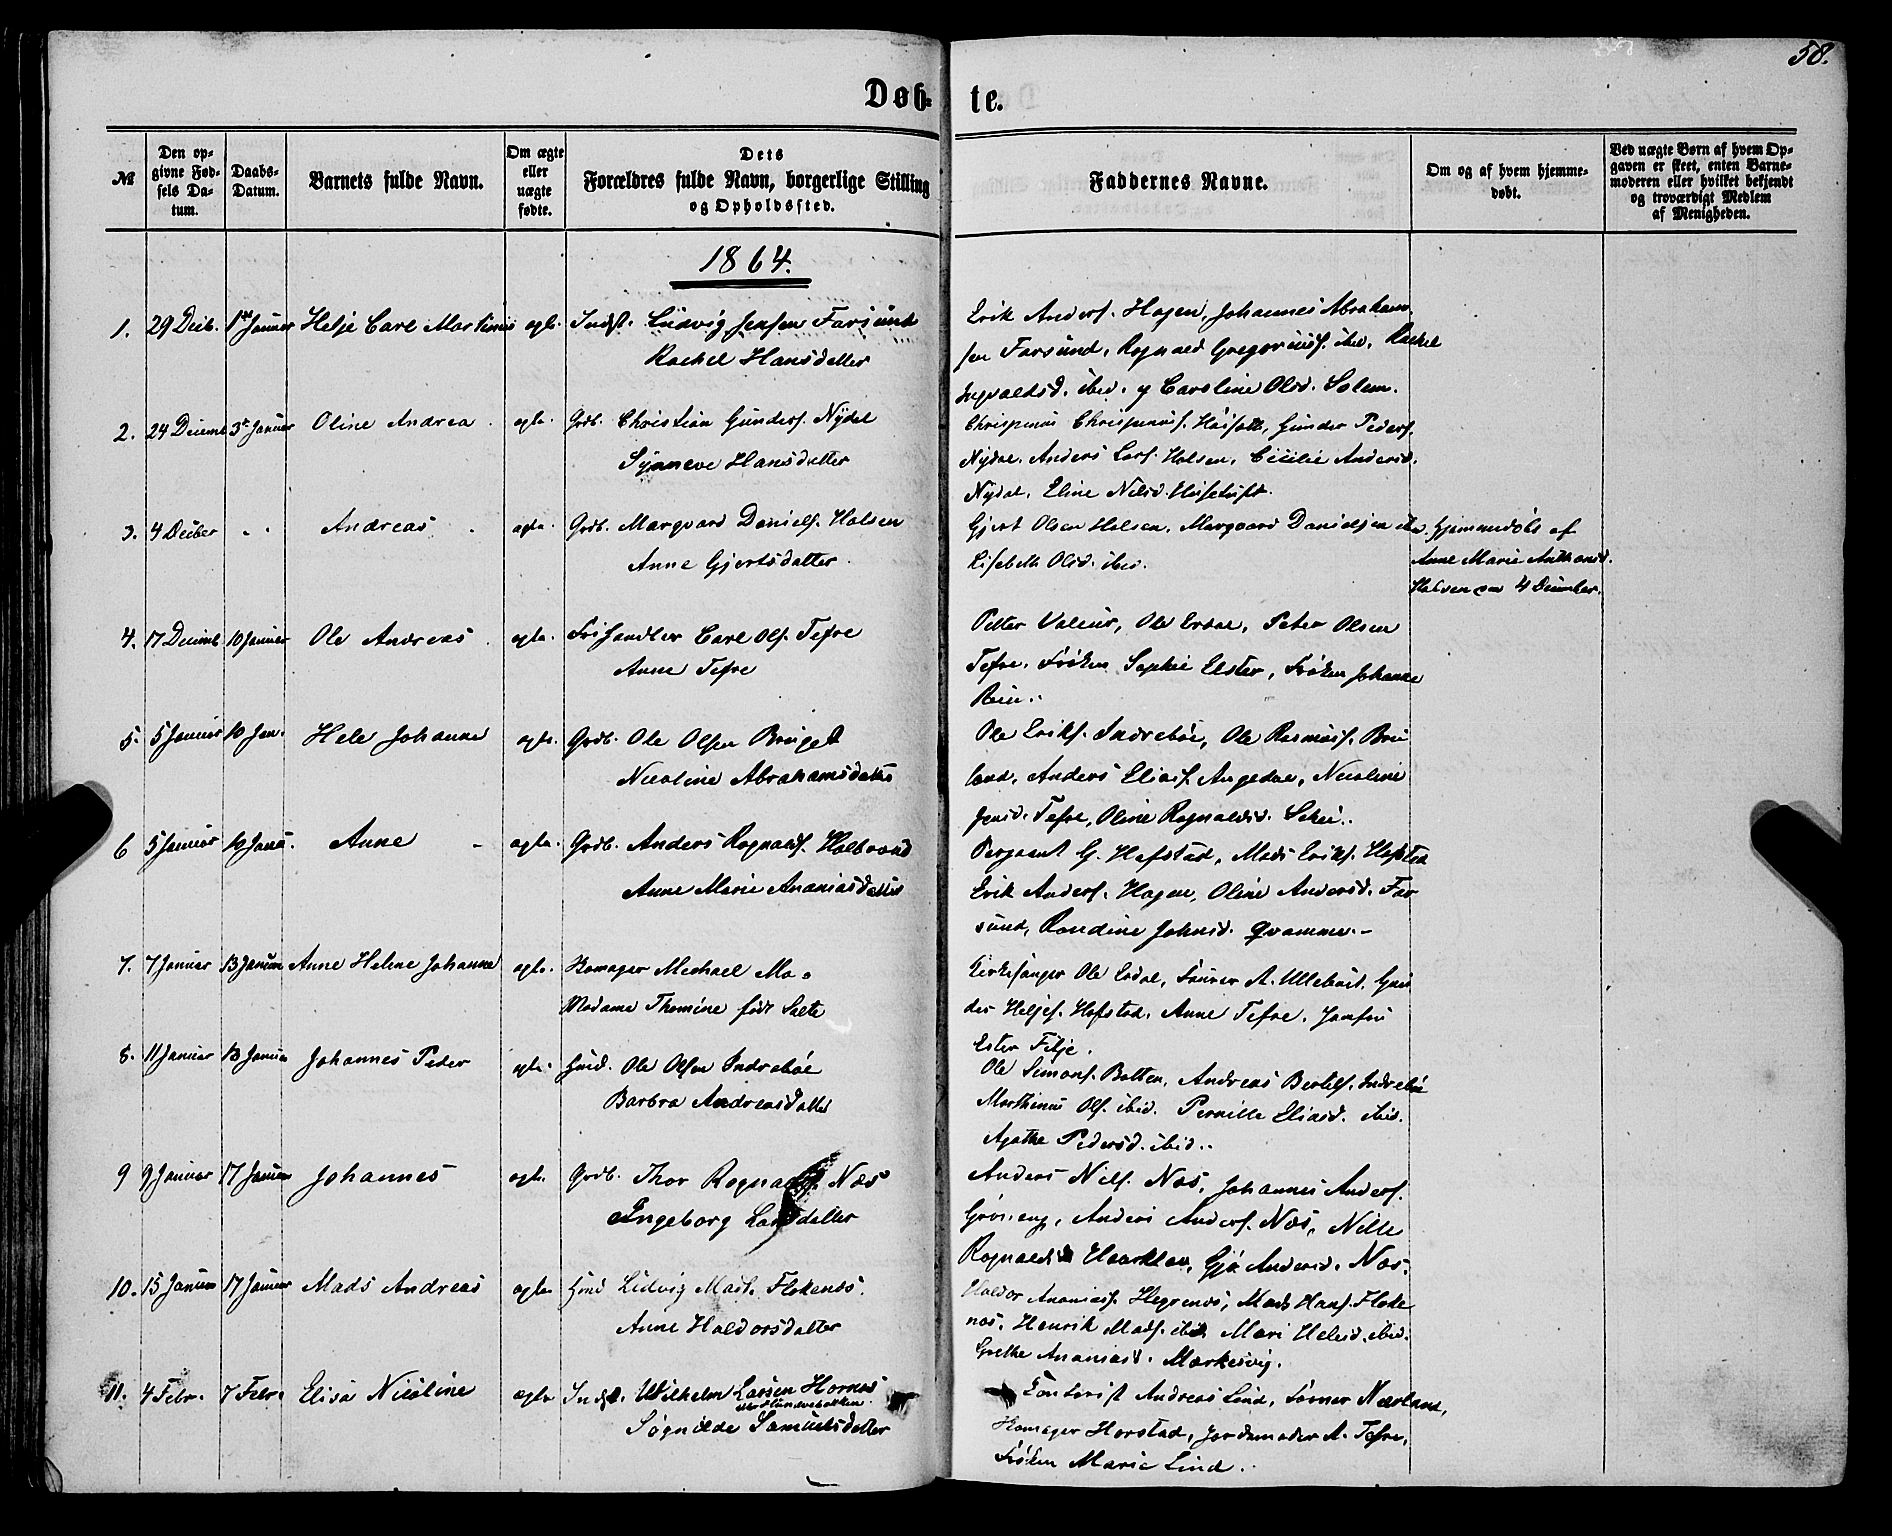 58.
Døb- te.
№
Den opgivne Fødsels Datum.
Daabs-Datum.
Barnets fulde Navn.
Om ægte eller uægte fødte.
Dets Forældres fulde Navn, borgerlige Stilling og Opholdssted.
Faddernes Navne.
Om og af hvem hjemmedøbt.
Ved uægte Børn af hvem Opgaven er skeet, enten Barnemoderen eller hvilket bekjendt og troværdigt Medlem af Menigheden.
1864.
1. 29 Decb. 1ste Januar Helje Carl Martinus ægte. Indst. Ludvig Jensen Farsund
Rachel Hansdatter
Erik Anders. Hagen, Johannes Abraham
sen Farsund, Rognald Gregoriuss. ibid, Rachel
Ingvaldsd. ibid. og Caroline Olsd. Solem.
2. 24 Decemb 3de Januar Oline Andrea ægte. Grdb. Christian Gunders. Nydal
Synneve Hansdatter
Chrispinus Chrispinuss. Gunder Peders.
Nydal. Anders Lars. Halsen, Cicilie Andersd.
Nydal, Eline Nilsd. Husetuft.
3. 4 Decber " " Andreas ægte. Grdb. Marqvard Daniels. Halsen
Anne Gjertsdatter
Gjert Olsen Halsen, Marqvard Danielsen ibid
Lisebeth Olsd. ibid.
Hjemmedøbt af
Anne Marie Anthonsd.
Halsen den 4 December.
4. 17 Decemb 10 Januar Ole Andreas ægte. Frihandler Carl Ols. Tefre
Anne Tefre
Petter Valeur, Ole Erdal, Peter Olsen
Tefre, Frøken Sophie Elster, Frøken Johanne
5. 5 Januar 10 Jan. Hele Johanne ægte. Grdb. Ole Olsen Bruget
Nicoline Abrahamsdatter
Ole Eriks. Indrebøe, Ole Rasmus. Bru
land, Anders Elias. Angedal, Nicoline
Jensd. Tefre, Oline Rognaldsd. Schei.
6 5 Januar 10 Janu. Anne ægte. Grdb. Anders Rognalds. Halbrand
Anne Marie Ananiasdatter
Sergeant G. Hafstad, Mads Eriks. Hafstad
Erik Anders. Hagen, Oline Andersd. Far
sund, Randine Johnsd. Qvamme.
7. 7 Januar 13 Januar Anne Helene Johanne ægte. Michael Mo
Madame Thomine født Salte
Kirkesanger Ole Erdal, A. Gun
der Heljes. Hafstad, Anne Tefre, Jomfru
Ester Fitje.
8. 11 Januar 13 Januar Johannes Peder ægte. Huusm. Ole Olsen Indrebøe
Barbra Andreasdatter
Ole Simons. Botten, Andreas Bertels. Indrebøe
Marthinus Ols. ibid. Pernille Eliasd. ibid.
Agathe Pedersd. ibid.
9 9 Januar 17 Januar Johannes ægte. Grdb. Thor Rognalds. Næs
Ingeborg Larsdatter
Anders Nils. Næs, Johannes Anders.
Grøneng, Anders Anders. Næs, Nille
Rognaldsd. Haarklau, Gjø Andersd. Næs.
10. 15 Januar 17 Januar Mads Andreas ægte Huusm Ludvig Mads. Flokenæs.
Anne Haldorsdatter
Haldor Ananias. Hegrenæs, Mads Hans. Floke
næs, Henrik Mads. ibid Mari Helesd. ibid.
Grethe Ananiasd. Markesvig.
11. 4 Febr. 7 Febr. Elisa Nicoline ægte Indst. Wilhelm Larsen Hornæs
Søgnilde Samuelsdatter
Andreas Lind, Nærland,
Horstad, Jordemoder A. Tefre,
Frøken Marie Lind.